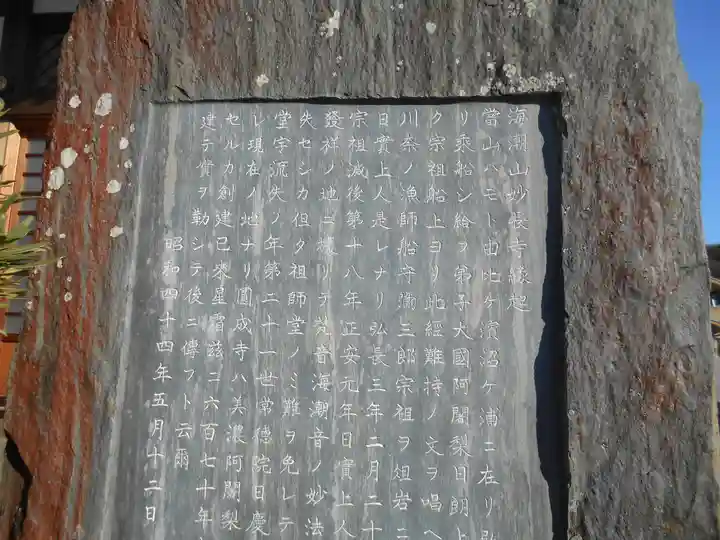 海潮山妙長寺縁起
當山ハモト由比ヶ濱沼ヶ浦ニ在リ弘
リ乘船シ給ヲ弟子大國阿闍梨日朗上
ク宗祖船上ヨリ此經難持ノ文ヲ唱ヘ
川奈ノ漁師船守彌三郎宗祖ヲ俎岩ニ
日實上人是レナリ弘長三年二月二十
宗祖滅後第十八年正安元年日實上人
發祥ノ地ニ據リテ梵音海潮音ノ妙法
失セシカ但タ祖師堂ノミ難ヲ免レテ
堂宇流失ノ年第二十一世常德院日慶
レ現在ノ地ナリ圓成寺ハ美濃阿闍梨
セルカ創建已來星霜茲ニ六百七十年
建テ貲ヲ勒シテ後ニ傳フト云爾
昭和四十四年五月十二日